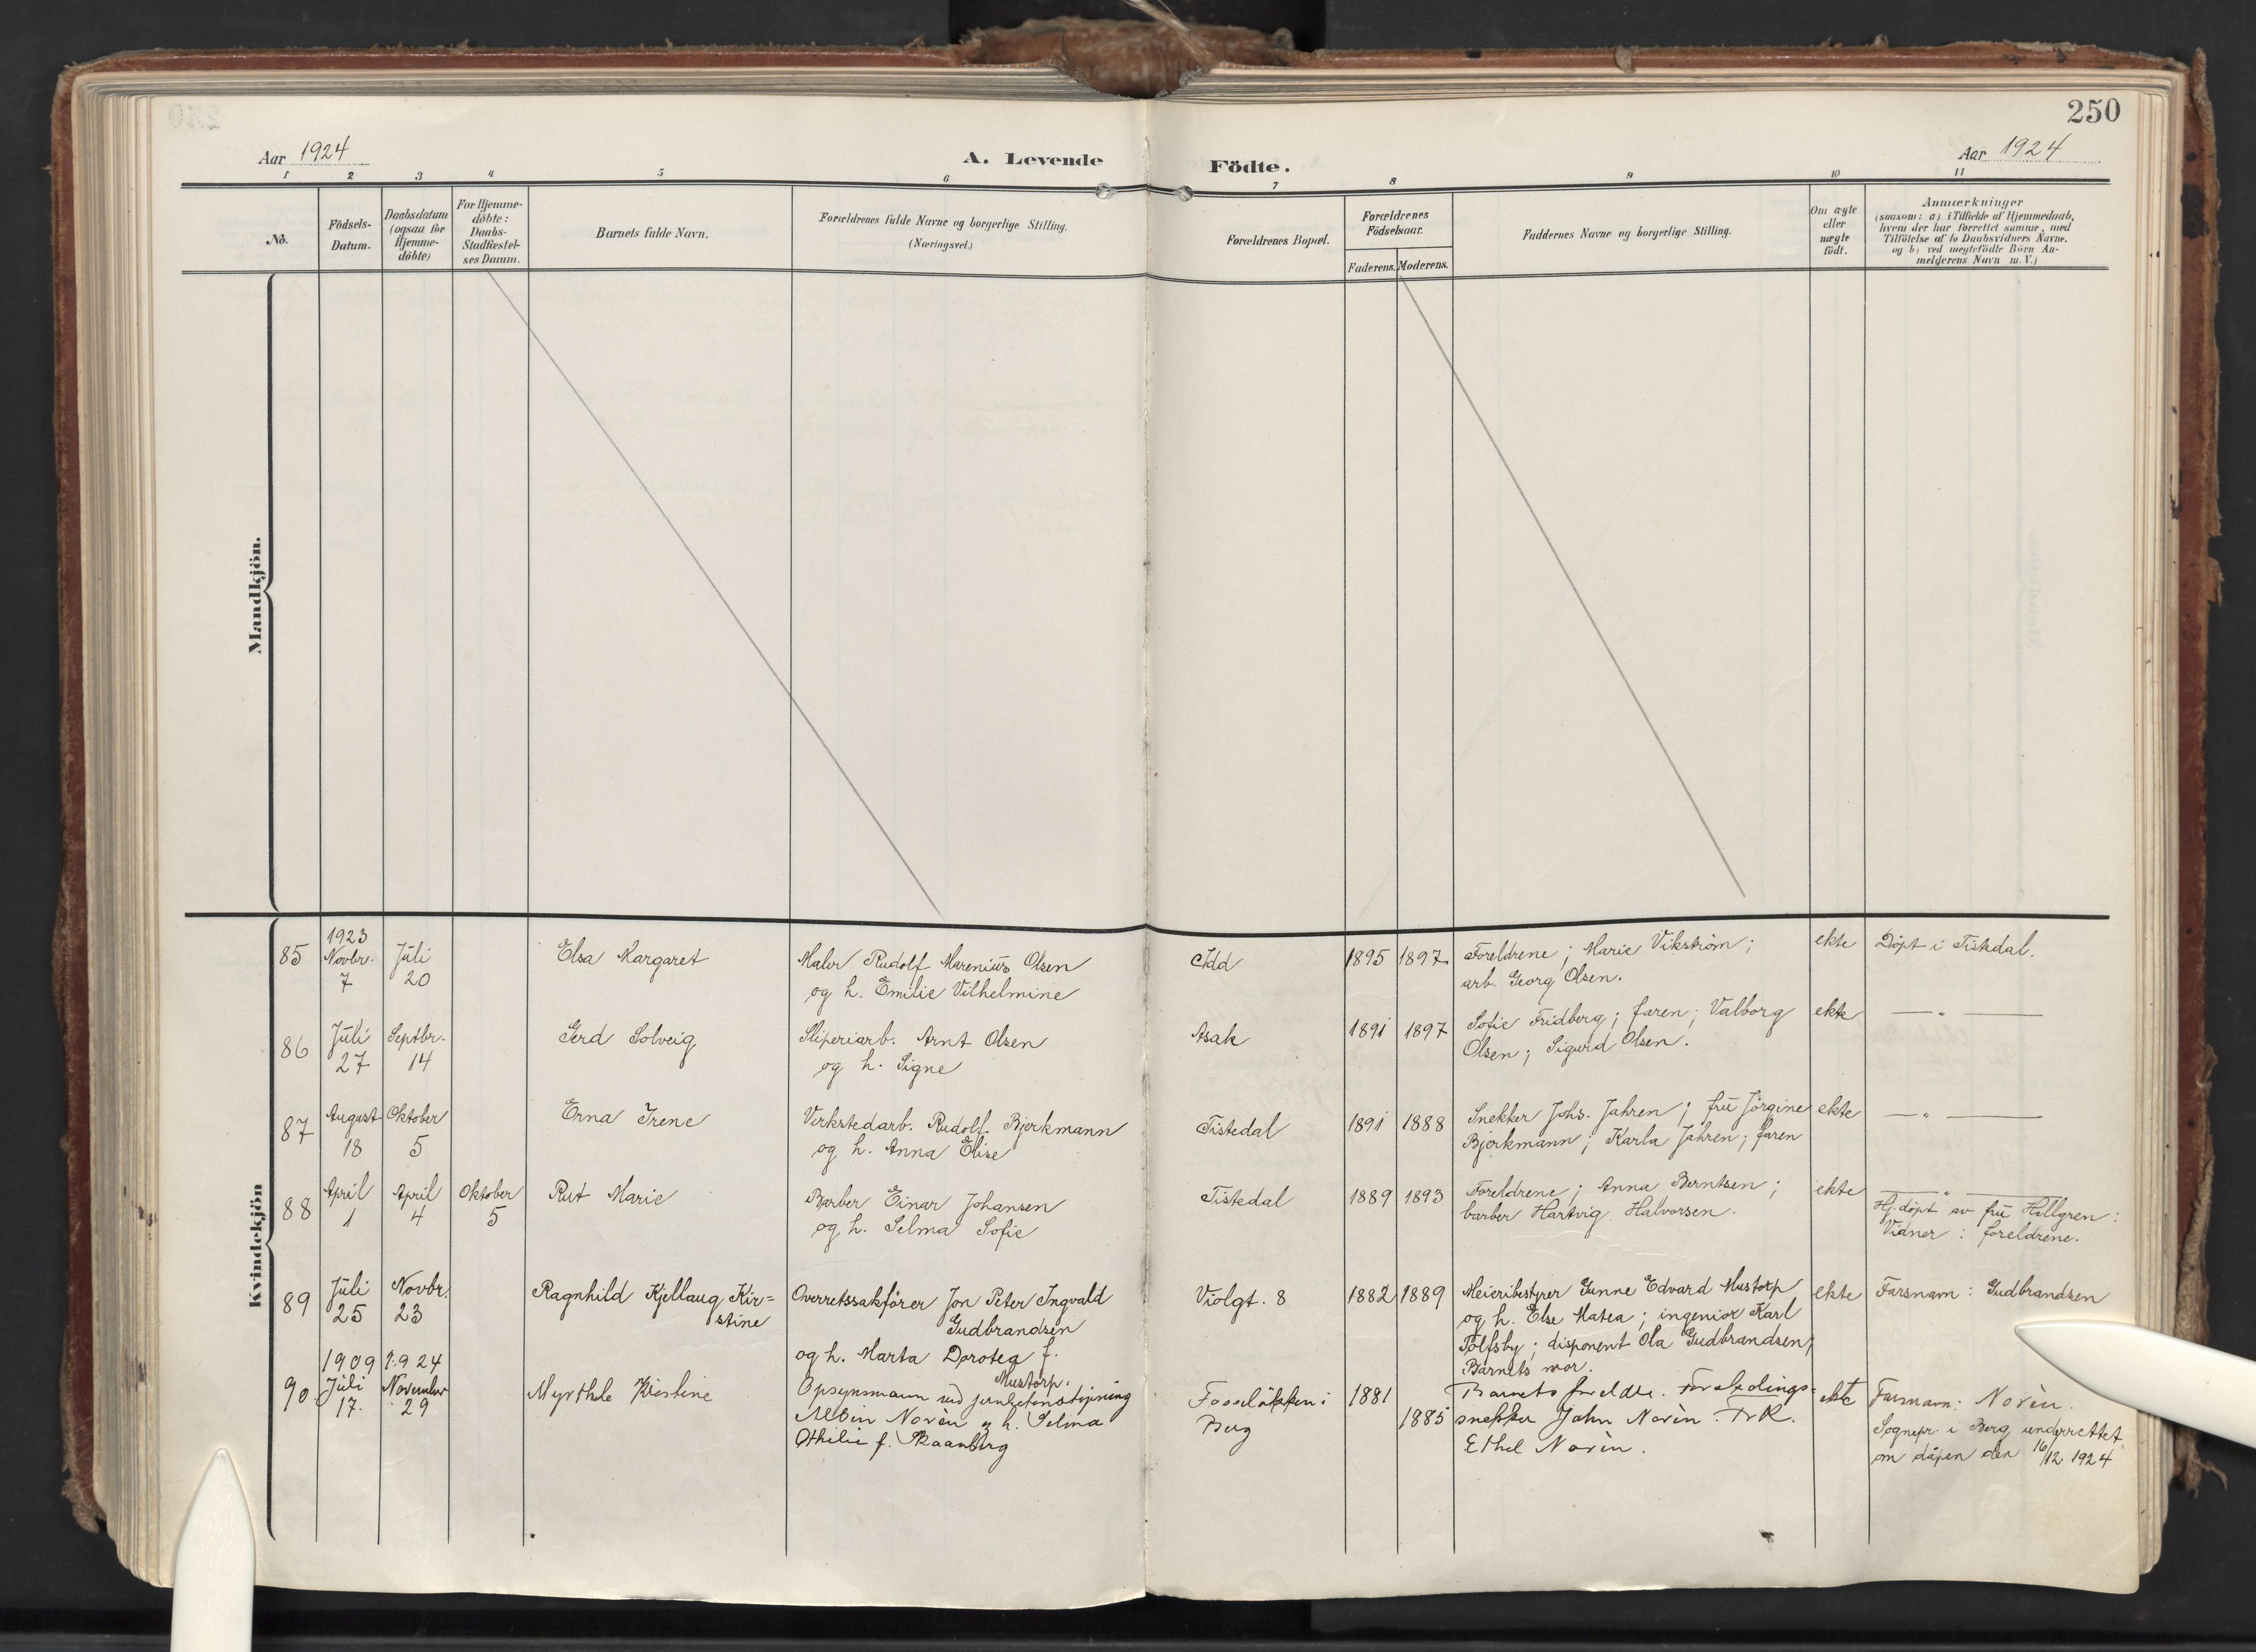 250
Aar 1924
A. Levende Födte.
Aar 1924
1 2 3 4 5 6 7 8 9 10 11
No.
Födsels-
Datum.
Daabsdatum
(ogsaa for
Hjemme-
döbte)
For Hjemme-
döbte:
Daabs-
Stadfæstel-
ses Datum.
Barnets fulde Navn.
Forældrenes fulde Navne og borgerlige Stilling.
(Næringsvei.)
Forældrenes Bopæl.
Forældrenes
Födselsaar.
Faderens. Moderens.
Faddernes Navne og borgerlige Stilling.
Om ægte
eller
uægte
födt.
Anmærkninger
(saasom: a) i Tilfælde af Hjemmedaab,
hvem der har forrettet samme, med
Tilföielse af to Daabsvidners Navne.
og b) ved uægtefödte Börn An-
melderens Navn m. V.)
Mandkjön.
Kvindekjön
85
1923
Novbr.
7
Juli
20
Elsa Margaret
Maler Rudolf Marenius Olsen
og h. Emilie Vilhelmine
Idd
1895 1897
Foreldrene; Marie Vikström;
arb. Georg Olsen.
ekte
Döpt i Tistedal.
86
Juli
27
Septbr.
14
Gerd Solveig
Sliperiarb. Arnt Olsen
og h. Signe
Asak
1891 1897
Sofie Fridberg; faren; Valborg
Olsen; Sigurd Olsen.
ekte
— „ —
87
August
18
Oktober
5
Erna Irene
Verkstedarb. Rudolf Bjerkmann
og h. Anna Elise
Tistedal
1891 1888
Snekker Johs. Jahren; fru Jörgine
Bjerkmann; Karla Jahren; faren
ekte
— „ —
88
April
1
April
4
Oktober
5
Rut Marie
Barber Einar Johansen
og h. Selma Sofie
Tistedal
1889 1893
Foreldrene; Anna Berntsen;
barber Hartvig Halvorsen.
ekte
— „ —
Hj.döpt av fru Hellgren:
Vidner: foreldrene.
89
Juli
25
Novbr.
23
Ragnhild Kjellaug Kir=
stine
Overretssakförer Jon Peter Ingvald
Gudbrandsen
og h. Marta Dorotea f.
Mustorp.
Violgt. 8
1882 1889
Meieribestyrer Gunne Edvard Mustorp
og h. Else Matea; ingeniör Karl
Tolfsby; disponent Ola Gudbrandsen;
Barnets mor.
ekte
Farsnavn: Gudbrandsen
90.
1909
Juli
17.
1924
November
29
Myrthle Kristine
Opsynsmann ved jernbetonstöpning
Albin Norèn og h. Selma
Othilie f. Skaanberg
Fosselökken i
Berg
1881
1885
Barnets foreldre.
snekker John Norèn. Fr K.
Ethel Norèn.
ekte
Farsnavn: Norèn.
Sognepr. i Berg underrettet
om dåpen den 16/12 1924